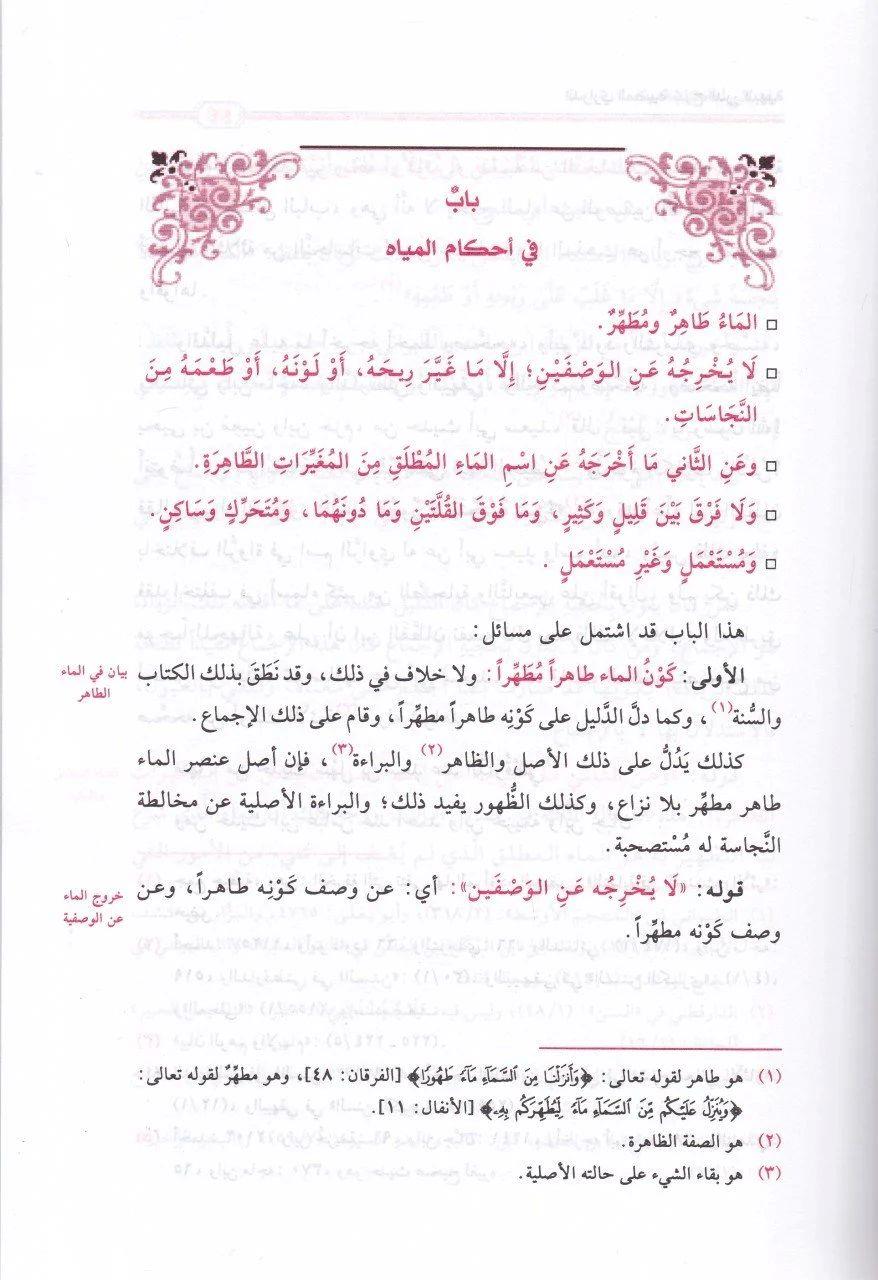 بابٌ
في أحكام المياه
□ المَاءُ طَاهِرٌ ومُطَهِّرٌ.
□ لَا يُخْرِجُهُ عَنِ الوَصْفَيْنِ؛ إِلَّا مَا غَيَّرَ رِيحَهُ، أَوْ لَوْنَهُ، أَوْ طَعْمَهُ مِنَ
النَّجَاسَاتِ.
□ وعَنِ الثَّاني مَا أَخْرَجَهُ عَنِ اسْمِ المَاءِ المُطْلَقِ مِنَ المُغَيِّرَاتِ الطَّاهِرَةِ.
□ وَلَا فَرْقَ بَيْنَ قَلِيلٍ وَكَثِيرٍ، وَمَا فَوْقَ القُلَّتَيْنِ وَمَا دُونَهُمَا، ومُتَحَرِّكٍ وَسَاكِنٍ.
□ وَمُسْتَعْمَلٍ وَغَيْرِ مُسْتَعْمَلٍ .
هذا الباب قد اشتمل على مسائل:
الأولى: كَوْنُ الماء طاهراً مُطَهِّراً: ولا خلاف في ذلك، وقد نَطَقَ بذلك الكتاب
بيان في الماء
الطاهر
والسُّنة(١)، وكما دلَّ الدَّليل على كَوْنِه طاهراً مطهِّراً، وقام على ذلك الإجماع.
كذلك يَدُلُّ على ذلك الأصل والظاهر(٢) والبراءة(٣)، فإن أصل عنصر الماء
طاهر مطهِّر بلا نزاع، وكذلك الظُّهور يفيد ذلك؛ والبراءة الأصلية عن مخالطة
النَّجاسة له مُسْتصحبة.
قوله: «لَا يُخْرِجُه عَنِ الوَصْفَين»: أي: عن وصف كَوْنِه طاهراً، وعن
خروج الماء
عن الوصفية
وصف كَوْنه مطهِّراً.
(١) هو طاهر لقوله تعالى: ﴿وَأَنزَلْنَا مِنَ ٱلسَّمَآءِ مَآءً طَهُورًا﴾ [الفرقان: ٤٨]، وهو مطهِّرٌ لقوله تعالى:
﴿وَيُنَزِّلُ عَلَيْكُم مِّنَ ٱلسَّمَآءِ مَآءً لِّيُطَهِّرَكُم بِهِۦ﴾ [الأنفال: ١١].
(٢) هو الصفة الظاهرة.
(٣) هو بقاء الشيء على حالته الأصلية.